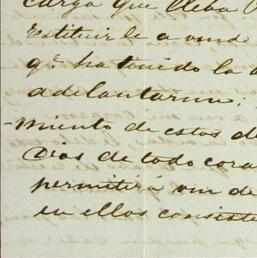 carga que lleba
restituirle a vmd
qe. ha tenido la a
adelantarme;
-miento de estos de
Dios de todo cora
permitirá vm de
en ellos consiste